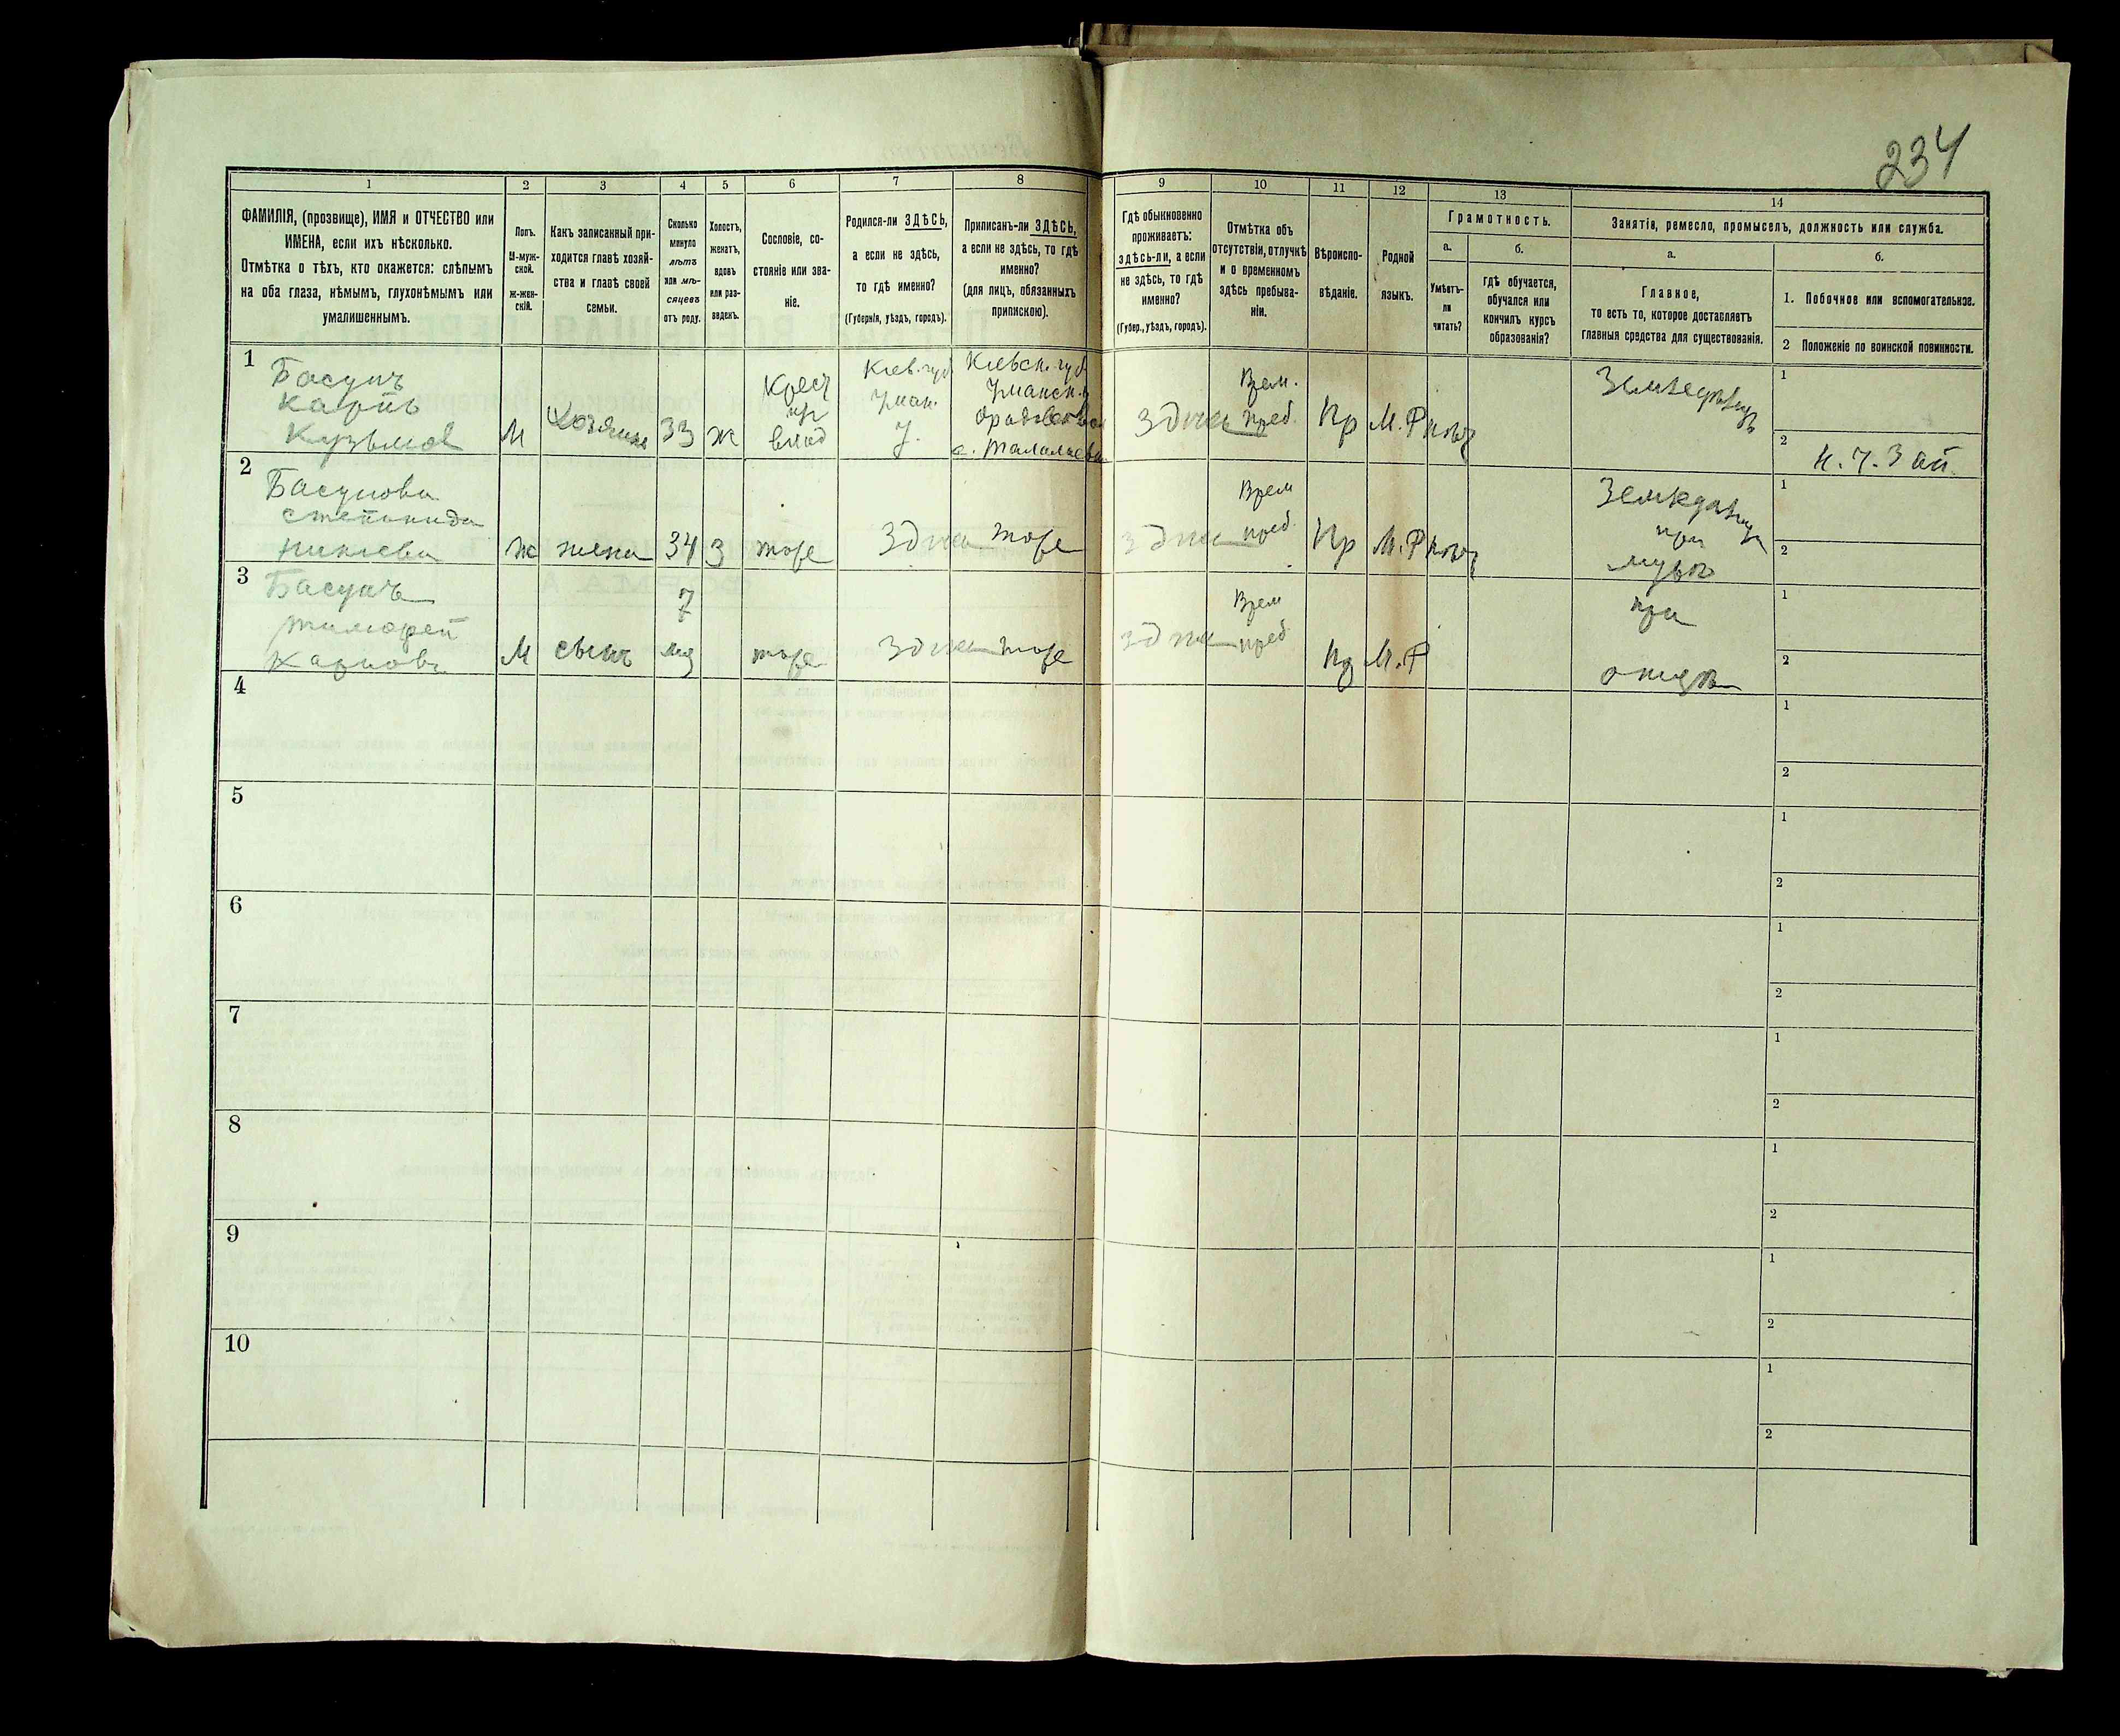 234
1
2
3
4
5
6
7
8
9
10
11
12
13
14
ФАМИЛІЯ, (прозвище), ИМЯ и ОТЧЕСТВО или
ИМЕНА, если ихъ нѣсколько.
Отмѣтка о тѣхъ, кто окажется: слѣпымъ
на оба глаза, нѣмымъ, глухонѣмымъ или
умалишеннымъ.
Полъ.
М-муж-
ской.
Ж-жен-
скій.
Какъ записанный при-
ходится главѣ хозяй-
ства и главѣ своей
семьи.
Сколько
минуло
лѣтъ
или мѣ-
сяцевъ
отъ роду.
Холостъ,
женатъ,
вдовъ
или раз-
веденъ.
Сословіе, со-
стояніе или зва-
ніе.
Родился-ли ЗДѢСЬ,
а если не здѣсь,
то гдѣ именно?
(Губернія, уѣздъ, городъ).
Приписанъ-ли ЗДѢСЬ,
а если не здѣсь, то гдѣ
именно?
(для лицъ, обязанныхъ
припискою).
Гдѣ обыкновенно
проживаетъ:
здѣсь-ли, а если
не здѣсь, то гдѣ
именно?
(Губер., уѣздъ, городъ).
Отмѣтка объ
отсутствіи, отлучкѣ
и о временномъ
здѣсь пребыва-
ніи.
Вѣроиспо-
вѣданіе.
Родной
языкъ.
Грамотность.
а.
б.
Умѣетъ-
ли
читать?
гдѣ обучается,
обучался или
кончилъ курсъ
образованія?
Занятія, ремесло, промыселъ, должность или служба.
а.
б.
Главное,
то есть то, которое доставляетъ
главныя средства для существованія.
1. Побочное или вспомогательное.
2 Положеніе по воинской повинности.
1
Басунъ
Карпъ
Кузьмов
М
Хозяинъ
33
ж
Крест
влад
Кіев. губ
Уман.
У.
Кіевск. губ
Уманск.
с. Талалаевка
здѣсь
Врем.
преб.
Пр
М.Р
нѣтъ
Земледѣлецъ
1
2
Н. Ч. Зап.
2
Басунова
Степанида
Ж
жена
34
З
тоже
здѣсь
тоже
здѣсь
Врем
преб
Пр
М.Р
нѣтъ
при
мужѣ
1
2
3
Басунъ
Тимофей
Карповъ
М
сынъ
7
мц
тоже
здѣсь
тоже
здѣсь
Врем
преб
Пр
М.Р
при
отцѣ
1
2
4
1
2
5
1
2
6
1
2
7
1
2
8
1
2
9
1
2
10
1
2